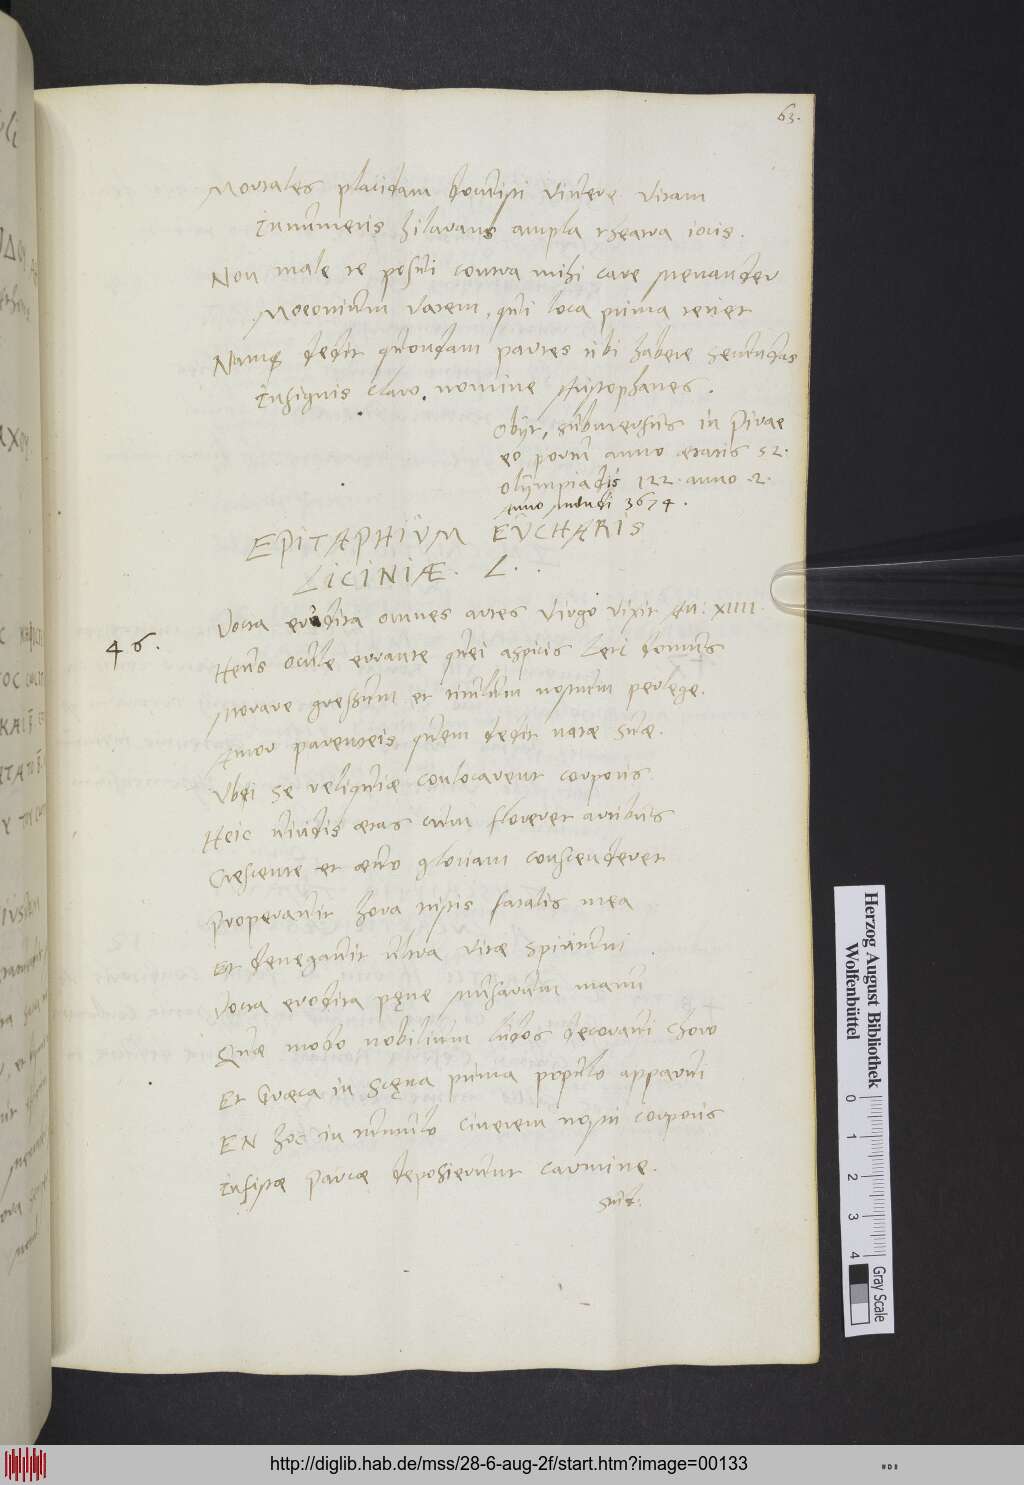 63.
Mortales placidam docuisti vivere vitam
Innumeris hilarans ampla theatra iocis.
Non male te posui contra mihi care Menander
Moeonium vatem, qui loca prima tenet
Namq dedit quondam partes tibi habere secundas
Insignis claro nomine Aristophanes.
Obijt, submersus in Pirae
eo portu anno ætatis 52.
Olÿmpiadis 122. anno .2.
Anno Mundi 3674.
EPITAPHIUM EUCHARIS
LICINIÆ. L.
46.
Docta erudita omnes artes Virgo vixit An: XIIII.
Heus oculo errante quei aspicis Leti domus
Morare gressum et titulum nostrum perlege.
Amor parenteis quem dedit natæ suæ.
Ubei se reliquiæ conlocarent corporis.
Heic viridis ætas cum floreret artibus
Crescente et ævo gloriam conscenderet
Properavit hora tristis fatalis mea
Et denegavit ultra vitæ spiritum
Docta erodita pęne Musarum manu
Quæ modo nobilium ludos decoravi choro
Et Græca in Scęna prima populo apparui
EN hoc in tumulo cinerem nostri corporis
Infistæ Parcæ deposierunt carmine.
Stud.
Herzog August Bibliothek
Wolfenbüttel
0 1 2 3 4
Gray Scale
http://diglib.hab.de/mss/28-6-aug-2f/start.htm?image=00133